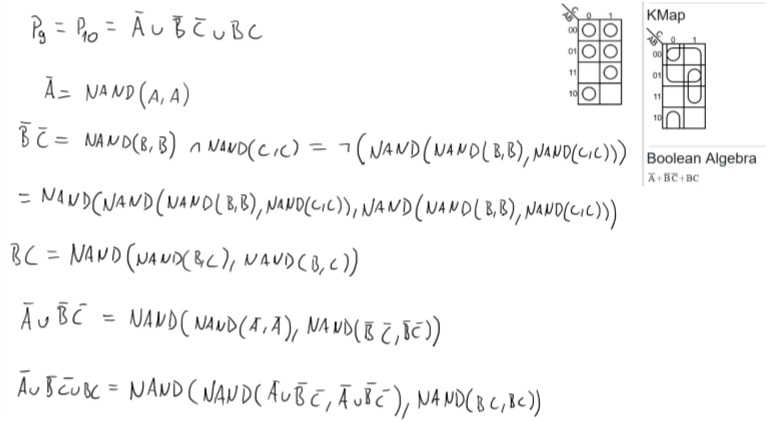 P₉ = P₁₀ = Ā ∪ B̄ C̄ ∪ BC
Ā = NAND(A, A)
B̄ C̄ = NAND(B, B) ∩ NAND(C, C) = ¬(NAND(NAND(B, B), NAND(C, C)))
= NAND(NAND(NAND(B, B), NAND(C, C)), NAND(NAND(B, B), NAND(C, C)))
BC = NAND(NAND(B, C), NAND(B, C))
Ā ∪ B̄ C̄ = NAND(NAND(Ā, Ā), NAND(B̄ C̄, B̄ C̄))
Ā ∪ B̄ C̄ ∪ BC = NAND(NAND(Ā ∪ B̄ C̄, Ā ∪ B̄ C̄), NAND(BC, BC))
C
AB 0 1
00
01
11
10
KMap
C
AB 0 1
00
01
11
10
Boolean Algebra
Ā+B̄C̄+BC